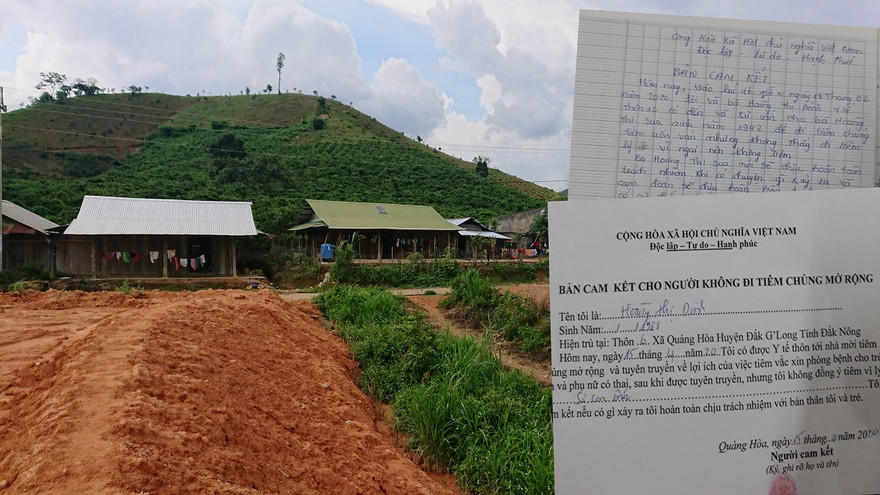 Cộng Hòa Xã Hội chủ nghĩa Việt Nam
Độc lập - tự do - Hạnh Phúc
BẢN CAM KẾT
Hôm nay, vào lúc 16 giờ ngày 15 Tháng 02
năm 2020 tôi và bà Hoàng Thị
thôn và đến và tư vấn cho bà Hoàng
Thị sua sinh năm 1992 để đi tiêm chủng
tiêm uốn ván nhưng không thấy đi tiêm
lý do vì ngại nên không tiêm
Bà Hoàng Thị Sua sẽ chịu hoàn toàn
trách nhiệm khi có chuyện gì xảy ra và
cam đoan sẽ chịu hoàn toàn
CỘNG HÒA XÃ HỘI CHỦ NGHĨA VIỆT NAM
Độc lập – Tự do – Hạnh phúc
BẢN CAM KẾT CHO NGƯỜI KHÔNG ĐI TIÊM CHỦNG MỞ RỘNG
Tên tôi là: Hoàng Thị Dinh
Sinh Năm: 1 / 1 / 1988
Hiện trú tại: Thôn 6. Xã Quảng Hòa Huyện Đắk G'Long Tỉnh Đắk Nông
Hôm nay, ngày 15 tháng 4 năm 20. Tôi có được Y tế thôn tới nhà mời tiêm
ủng mở rộng và tuyên truyền về lợi ích của việc tiêm vắc xin phòng bệnh cho trẻ
và phụ nữ có thai, sau khi được tuyên truyền, nhưng tôi không đồng ý tiêm vì lý
Sợ con ốm. Tôi
m kết nếu có gì xảy ra tôi hoàn toàn chịu trách nhiệm với bản thân tôi và trẻ.
Quảng Hòa, ngày 15 tháng 4 năm 2020
Người cam kết
(Ký, ghi rõ họ và tên)